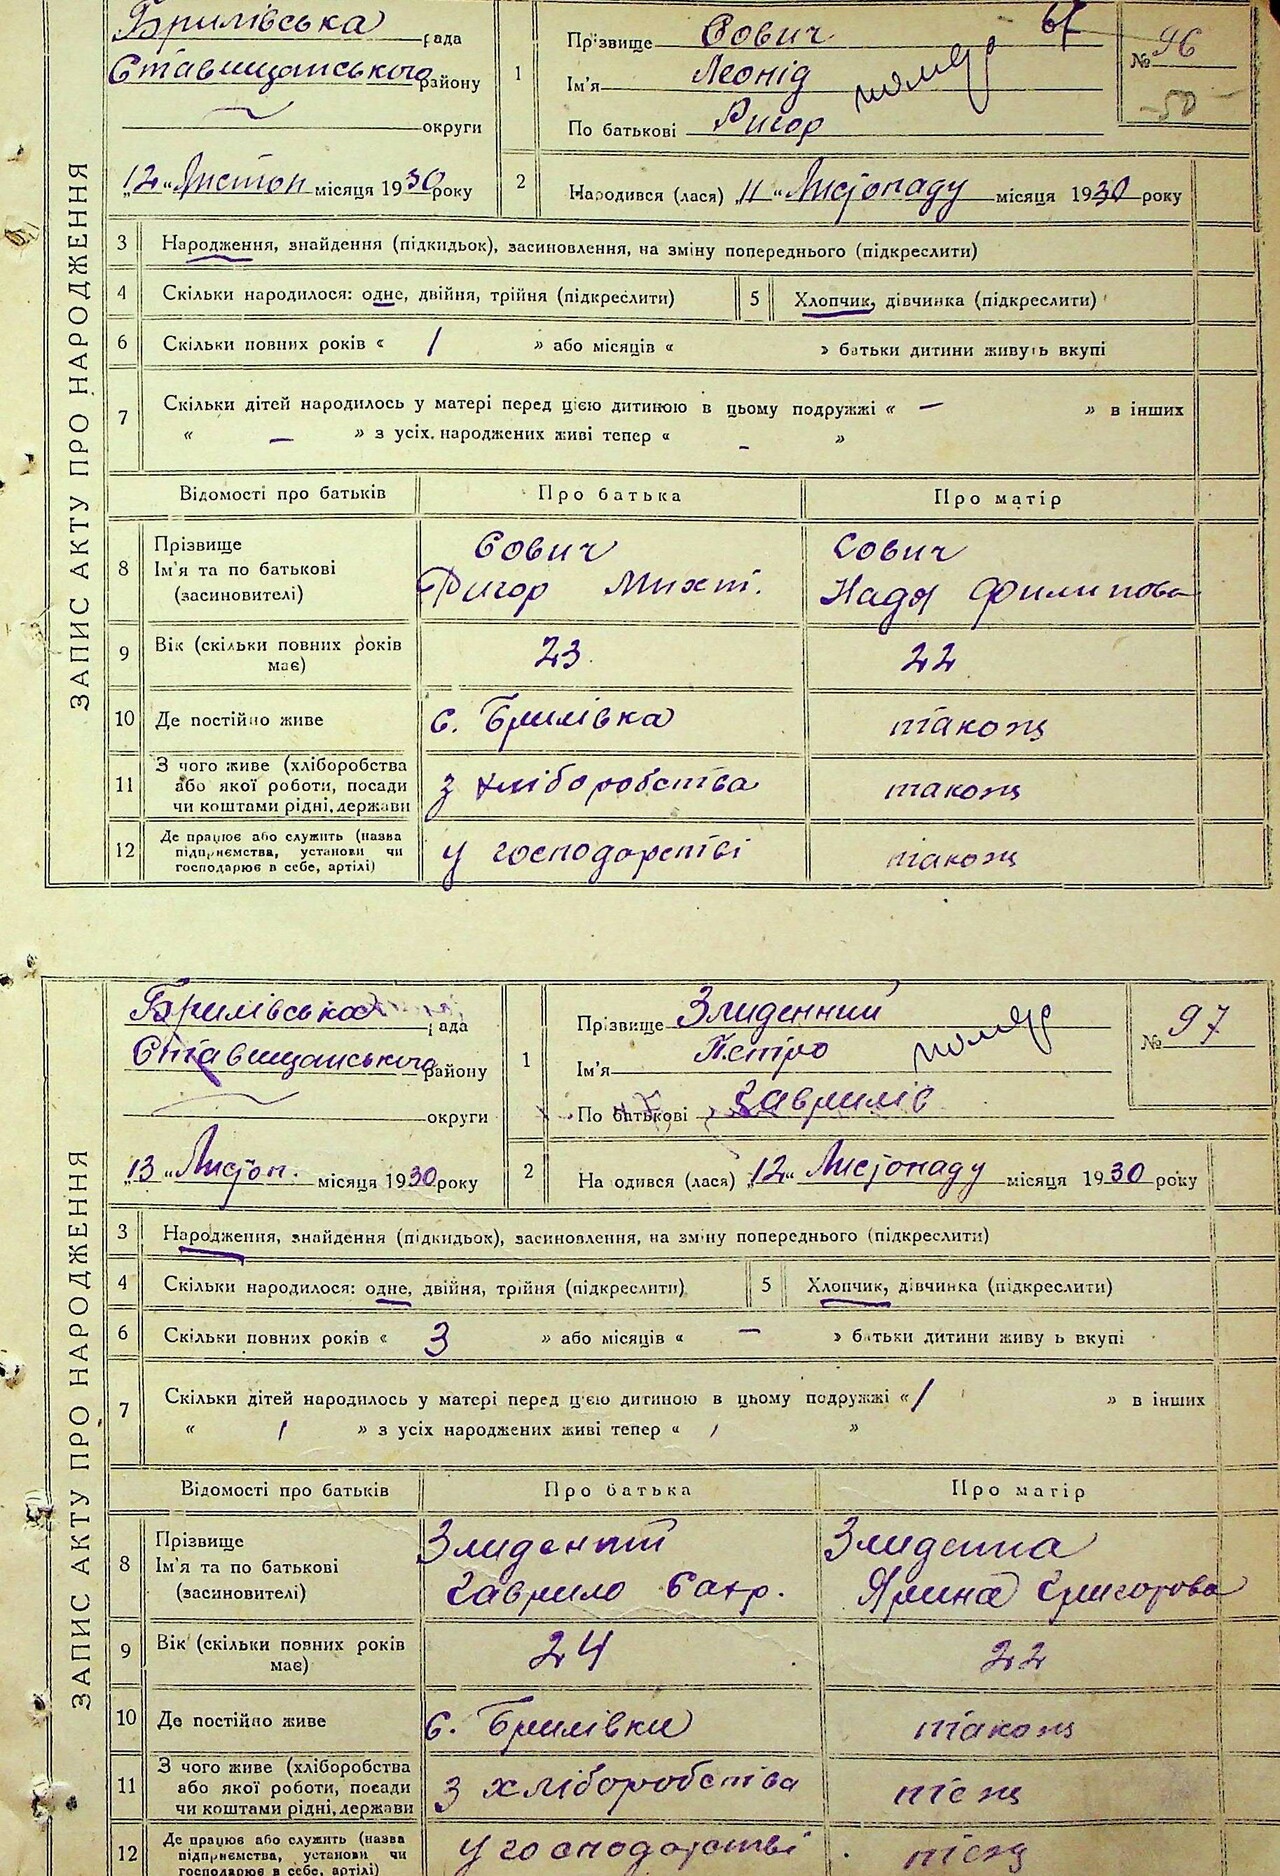 ЗАПИС АКТУ ПРО НАРОДЖЕННЯ
Брилівська рада
Ставищанського району
округи
„12“ Листоп місяця 1930 року
1 Прізвище Сович
Ім'я Леонід
По батькові Ригор
помер
67
№ 96
50
2 Народився (лася) „11“ Листопаду місяця 1930 року
3 Народження, знайдення (підкидьок), засиновлення, на зміну попереднього (підкреслити)
4 Скільки народилося: одне, двійня, трійня (підкреслити) 5 Хлопчик, дівчинка (підкреслити)
6 Скільки повних років « 1 » або місяців « » батьки дитини живуть вкупі
7 Скільки дітей народилось у матері перед цією дитиною в цьому подружжі « — » в інших
« — » з усіх народжених живі тепер « - »
Відомості про батьків Про батька Про матір
8 Прізвище Ім'я та по батькові (засиновителі) Сович Сович
Ригор Надя Филипова
9 Вік (скільки повних років має) 23 22
10 Де постійно живе с. Брилівка також
11 З чого живе (хліборобства або якої роботи, посади чи коштами рідні, держави з хліборобства також
12 Де працює або служить (назва підприємства, установи чи господарює в себе, артілі) у господарстві також
ЗАПИС АКТУ ПРО НАРОДЖЕННЯ
Брилівська рада
Ставищанського району
округи
„13“ Листоп. місяця 1930 року
1 Прізвище Злиденний
Ім'я Петро
По батькові Гаврилів
помер
№ 97
2 На одився (лася) „12“ Листопаду місяця 1930 року
3 Народження, знайдення (підкидьок), засиновлення, на зміну попереднього (підкреслити)
4 Скільки народилося: одне, двійня, трійня (підкреслити) 5 Хлопчик, дівчинка (підкреслити)
6 Скільки повних років « 3 » або місяців « — » батьки дитини живу ь вкупі
7 Скільки дітей народилось у матері перед цією дитиною в цьому подружжі « 1 » в інших
« 1 » з усіх народжених живі тепер « 1 »
Відомості про батьків Про батька Про матір
8 Прізвище Ім'я та по батькові (засиновителі) Злиденний Злиденна
Гаврило Ярина Григорова
9 Вік (скільки повних років має) 24 22
10 Де постійно живе с. Брилівки також
11 З чого живе (хліборобства або якої роботи, посади чи коштами рідні, держави з хліборобства теж
12 Де працює або служить (назва підприємства, установи чи господарює в себе, артілі) у господарстві теж